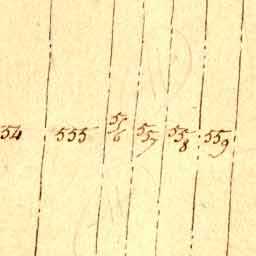 54 555 576 557 558 559